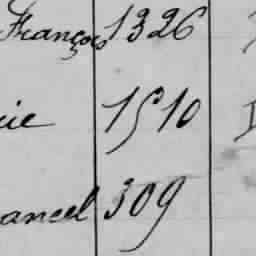 François 1326
cie 1510
ancel 309